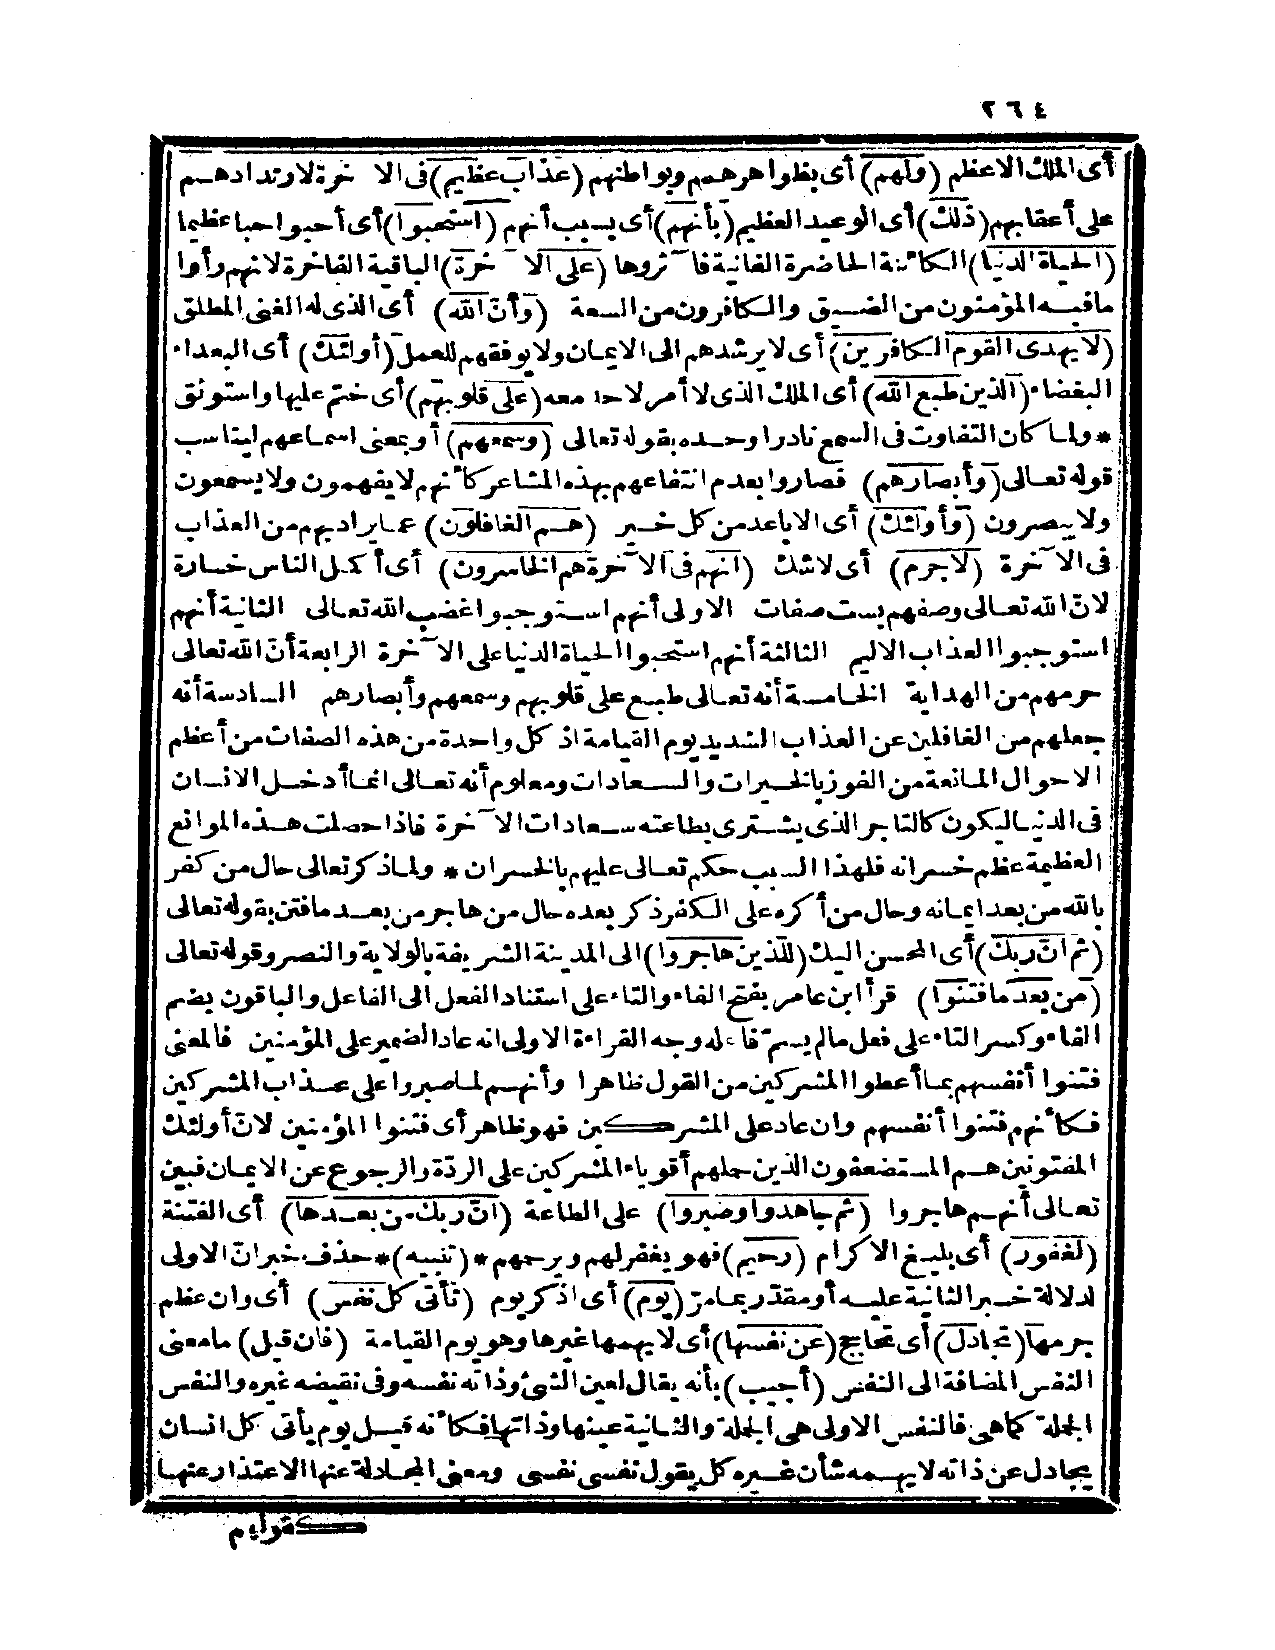 ٢٦٤
أى الملك الاعظم (ولهم) أى بظواهرهم وبواطنهم (عذاب عظيم) فى الآخرة لارتدادهم
على أعقابهم (ذلك) أى الوعيد العظيم (بأنهم) أى بسبب أنهم (استحبوا) أى أحبوا حبا عظيما
(الحياة الدنيا) الكائنة الحاضرة الفانية فآثروها (على الآخرة) الباقية الفاخرة لانهم رأوا
مافيه المؤمنون من الضيق والكافرون من السعة (وأنّ الله) أى الذى له الغنى المطلق
(لا يهدى القوم الكافرين) أى لا يرشدهم الى الايمان ولا يوفقهم للعمل (أولئك) أى البعداء
البغضاء (الذين طبع الله) أى الملك الذى لا أمر لاحد معه (على قلوبهم) أى ختم عليها واستوثق
* ولما كان التفاوت فى السمع نادرا وحده بقوله تعالى (وسمعهم) أو بمعنى اسماعهم ليناسب
قوله تعالى (وأبصارهم) فصاروا بعدم انتفاعهم بهذه المشاعر كأنهم لا يفهمون ولا يسمعون
ولا يبصرون (وأولئك) أى الاباعد من كل خير (هم الغافلون) عما يراد بهم من العذاب
فى الآخرة (لاجرم) أى لاشك (انهم فى الآخرة هم الخاسرون) أى أكمل الناس خسارة
لانّ الله تعالى وصفهم بست صفات الاولى أنهم استوجبوا غضب الله تعالى الثانية أنهم
استوجبوا العذاب الاليم الثالثة أنهم استحبوا الحياة الدنيا على الآخرة الرابعة أنّ الله تعالى
حرمهم من الهداية الخامسة أنه تعالى طبع على قلوبهم وسمعهم وأبصارهم السادسة أنه
جعلهم من الغافلين عن العذاب الشديد يوم القيامة اذ كل واحدة من هذه الصفات من أعظم
الاحوال المانعة من الفوز بالخيرات والسعادات ومعلوم أنه تعالى انما أدخل الانسان
فى الدنيا ليكون كالتاجر الذى يشترى بطاعته سعادات الآخرة فاذا حصلت هذه الموانع
العظيمة عظم خسرانه فلهذا السبب حكم تعالى عليهم بالخسران * ولما ذكر تعالى حال من كفر
بالله من بعد ايمانه وحال من أكره على الكفر ذكر بعده حال من هاجر من بعد ما فتن بقوله تعالى
(ثم انّ ربك) أى المحسن اليك (للذين هاجروا) الى المدينة الشريفة بالولاية والنصر وقوله تعالى
(من بعد ما فتنوا) قرأ ابن عامر بفتح الفاء والتاء على استناد الفعل الى الفاعل والباقون بضم
الفاء وكسر التاء على فعل مالم يسمّ فاعله وجه القراءة الاولى انه عاد الضمير على المؤمنين فالمعنى
فتنوا أنفسهم بما أعطوا المشركين من القول ظاهرا وأنهم لما صبروا على عذاب المشركين
فكأنهم فتنوا أنفسهم وان عاد على المشركين فهو ظاهر أى فتنوا المؤمنين لانّ أولئك
المفتونين هم المستضعفون الذين حملهم أقوياء المشركين على الردّة والرجوع عن الايمان فبين
تعالى أنهم هاجروا (ثم جاهدوا وصبروا) على الطاعة (انّ ربك من بعدها) أى الفتنة
(لغفور) أى بليغ الاكرام (رحيم) فهو يغفر لهم ويرحمهم * (تنبيه) * حذف خبر انّ الاولى
لدلالة خبر الثانية عليه أو مقدر بما مرّ (يوم) أى اذكر يوم (تأتى كل نفس) أى وان عظم
جرمها (تجادل) أى تحاجج (عن نفسها) أى لا يهمها غيرها وهو يوم القيامة (فان قيل) مامعنى
النفس المضافة الى النفس (أجيب) بأنه يقال لعين الشئ وذاته نفسه وفى نقيضه غيره والنفس
الجملة كما هى فالنفس الاولى هى الجملة والثانية عينها وذاتها فكأنه قيل يوم يأتى كل انسان
يجادل عن ذاته لا يهمه شأن غيره كل يقول نفسى نفسى ومعنى المجادلة عنها الاعتذار عنها
كقولهم